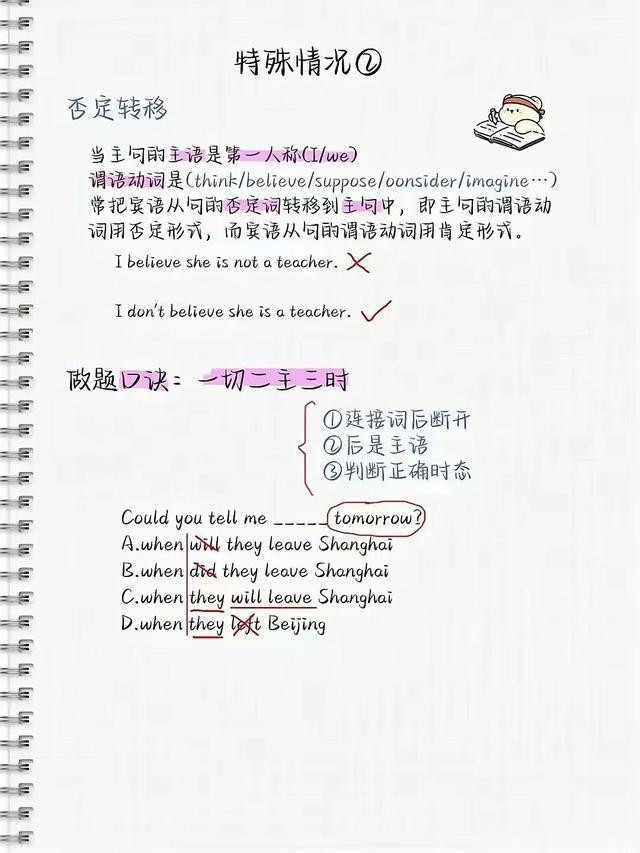 特殊情况②
否定转移
当主句的主语是第一人称(I/we)
谓语动词是(think/believe/suppose/oonsider/imagine…)
常把宾语从句的否定词转移到主句中，即主句的谓语动
词用否定形式，而宾语从句的谓语动词用肯定形式。
I believe she is not a teacher.
I don't believe she is a teacher.
做题口诀：一切二主三时
①连接词后断开
②后是主语
③判断正确时态
Could you tell me _____ tomorrow?
A.when will they leave Shanghai
B.when did they leave Shanghai
C.when they will leave Shanghai
D.when they left Beijing